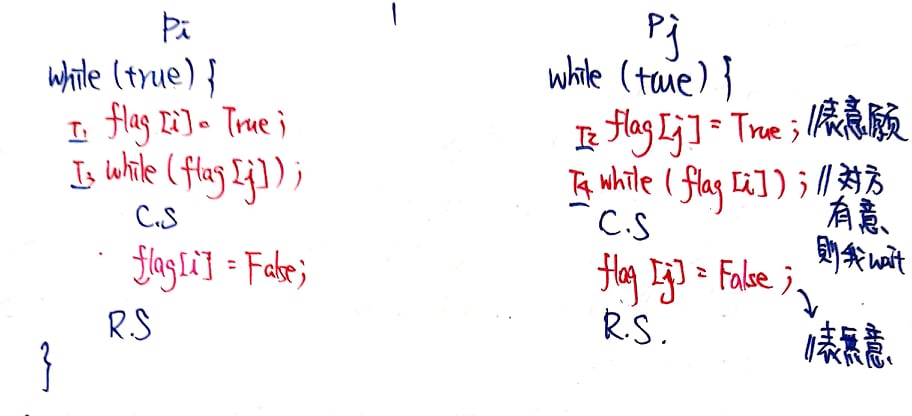 Pi
while (true) {
T1 flag [i] = True;
T3 while (flag [j]);
C.S
flag[i] = False;
R.S
}
Pj
while (true) {
T2 flag [j] = True; //表意願
T4 while (flag [i]); //對方
有意、
則我wait
C.S
flag [j] = False;
R.S.
//表無意、